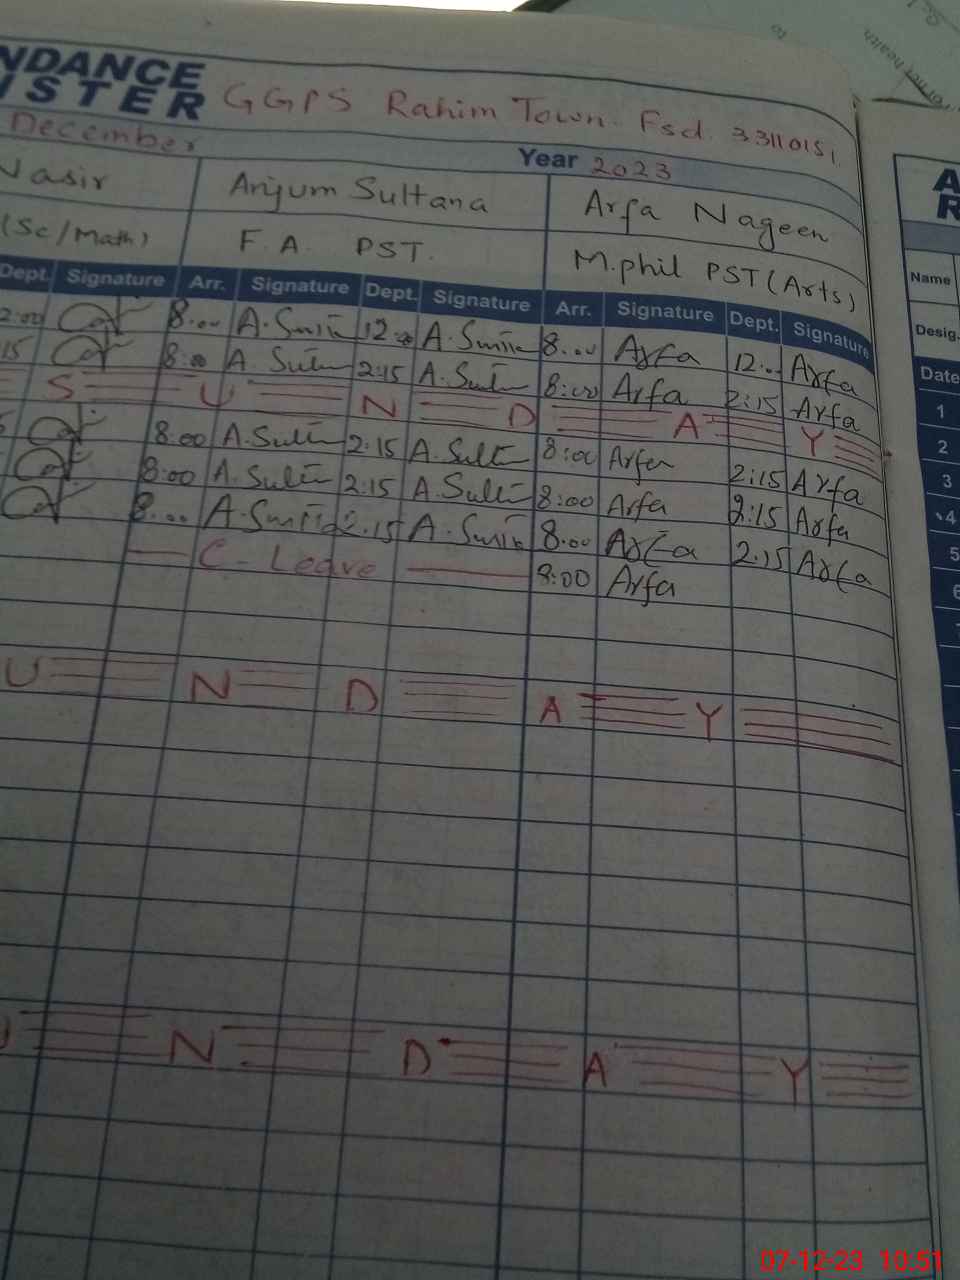 NDANCE
ISTER GGPS Rahim Town. Fsd. 33110151
December
Year 2023
Nasir Anjum Sultana Arfa Nageen
(Sc/Math) F.A. PST. M.phil PST (Arts)
Dept. Signature Arr. Signature Dept. Signature Arr. Signature Dept. Signature
2:00 8:00 12:00 8:00 Arfa 12:00 Arfa
15 8:00 2:15 8:00 Arfa 2:15 Arfa
S U N D A Y
8:00 2:15 8:00 Arfa 2:15 Arfa
8:00 2:15 8:00 Arfa 2:15 Arfa
8:00 2:15 8:00 Arfa 2:15 Arfa
C-Leave 8:00 Arfa
U N D A Y
N D A Y
Name
Desig.
Date
1
2
3
4
5
6
07-12-23 10:51